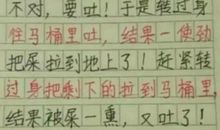 不对，要吐！于是转过身
往马桶里吐，结果一使劲
把屎拉到地上了！赶紧转
过身把剩下的拉到马桶里，
结果被屎一熏，又吐了！